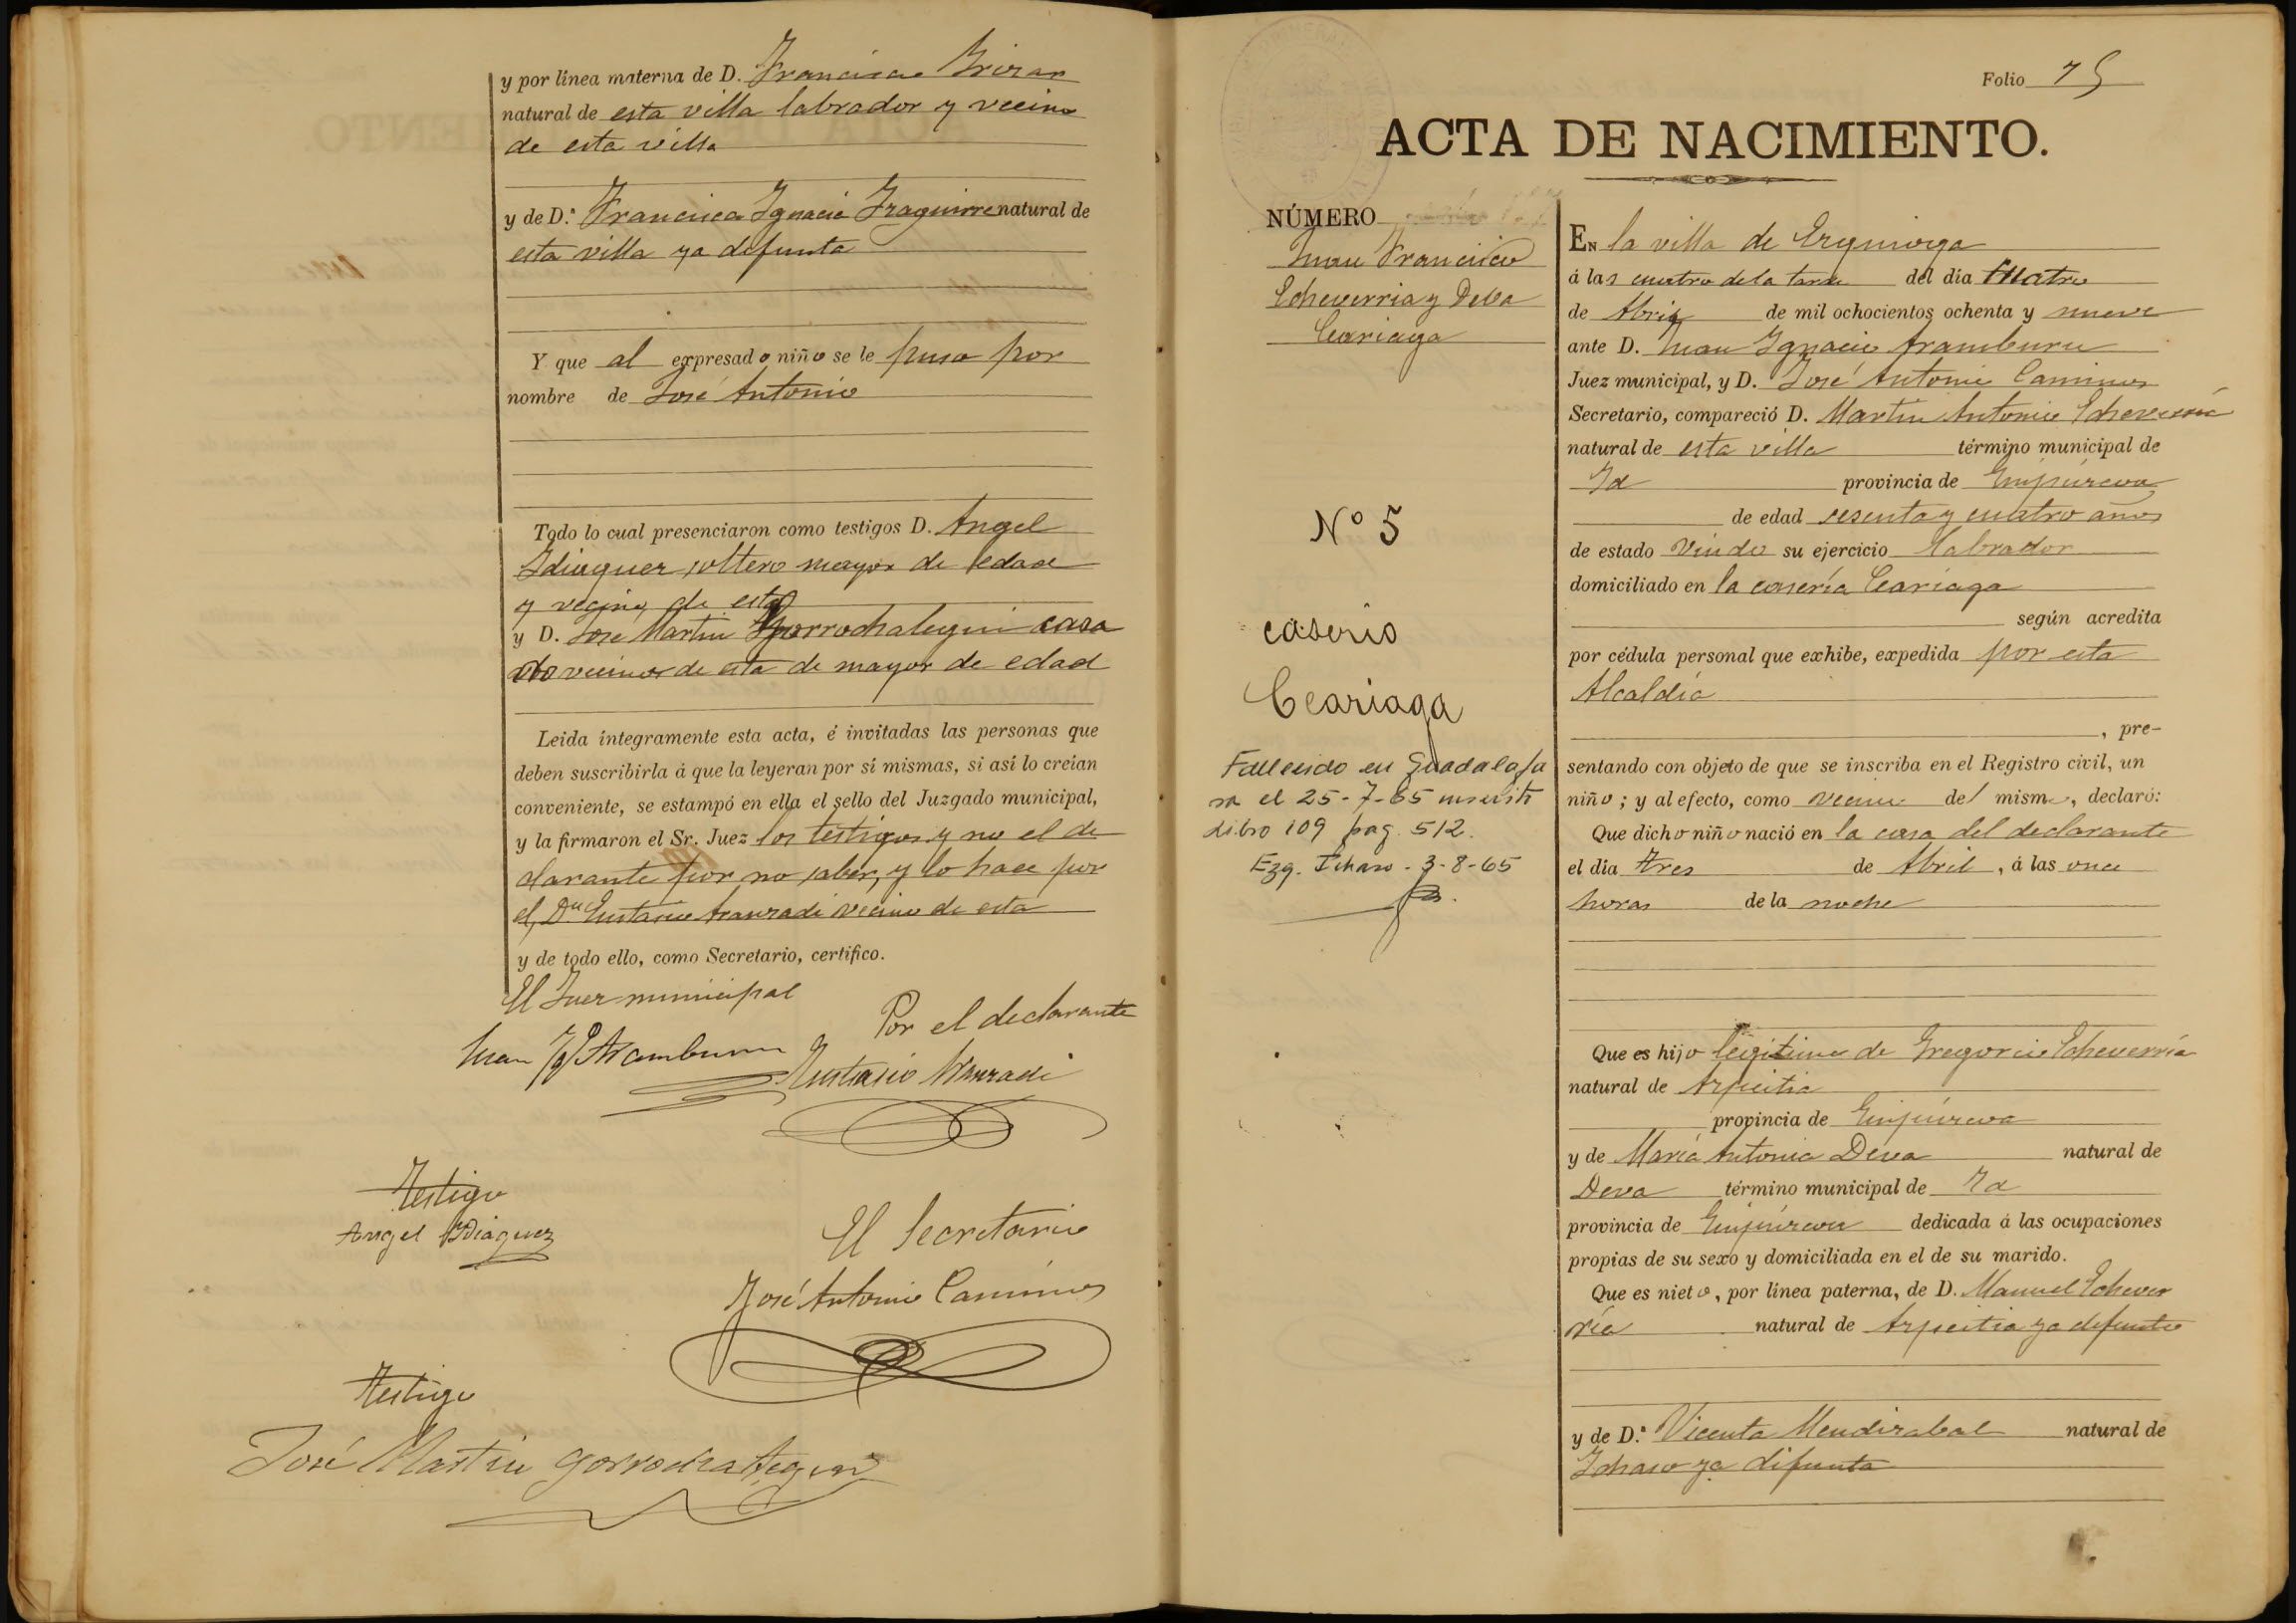 y por línea materna de D. Francisco Irizar
natural de esta villa labrador y vecino
de esta villa
y de D.ª Francisca Ignacia Izaguirre natural de
esta villa ya difunta
Y que al expresado niño se le puso por
nombre de José Antonio
Todo lo cual presenciaron como testigos D. Angel
Idiaquez soltero mayor de edad
y vecino de esta
y D. José Martin Gorrochategui casa
do vecinos de esta de mayor de edad
Leida íntegramente esta acta, é invitadas las personas que
deben suscribirla á que la leyeran por sí mismas, si así lo creían
conveniente, se estampó en ella el sello del Juzgado municipal,
y la firmaron el Sr. Juez los testigos y no el de
clarante por no saber, y lo hace por
el, Dn Eustasio Aranzadi vecino de esta
y de todo ello, como Secretario, certifico.
El Juez municipal
Por el declarante
Juan Ig Aramburu
Eustasio Aranzadi
Testigo
Angel Idiaquez
El Secretario
José Antonio Caminos
Testigo
José Martin Gorrochategui
Folio 75
ACTA DE NACIMIENTO.
NÚMERO
Juan Francisco
Echeverria y Deva
Leariaga
Nº 5
caserio
Leariaga
Fallecido en Guadalaja
ra el 25-7-65 inscrito
libro 109 pag. 512.
Ezq. Ichaso - 3-8-65
EN la villa de Ezquioga
á las cuatro de la tarde del día cuatro
de Abril de mil ochocientos ochenta y nueve
ante D. Juan Ignacio Aramburu
Juez municipal, y D. José Antonio Caminos
Secretario, compareció D. Martin Antonio Echeverria
natural de esta villa término municipal de
Id provincia de Guipúzcoa
de edad sesenta y cuatro años
de estado Viudo su ejercicio labrador
domiciliado en la casería Leariaga
según acredita
por cédula personal que exhibe, expedida por esta
Alcaldía
, pre-
sentando con objeto de que se inscriba en el Registro civil, un
niño; y al efecto, como vecino del mismo, declaró:
Que dicho niño nació en la casa del declarante
el día tres de Abril, á las once
horas de la noche
Que es hijo legitimo de Gregorio Echeverría
natural de Azpeitia
provincia de Guipúzcoa
y de María Antonia Deva natural de
Deva término municipal de Id
provincia de Guipúzcoa dedicada á las ocupaciones
propias de su sexo y domiciliada en el de su marido.
Que es nieto, por línea paterna, de D. Manuel Echever
ría natural de Azpeitia ya difunto
y de D.ª Vicenta Mendizabal natural de
Ichaso ya difunta